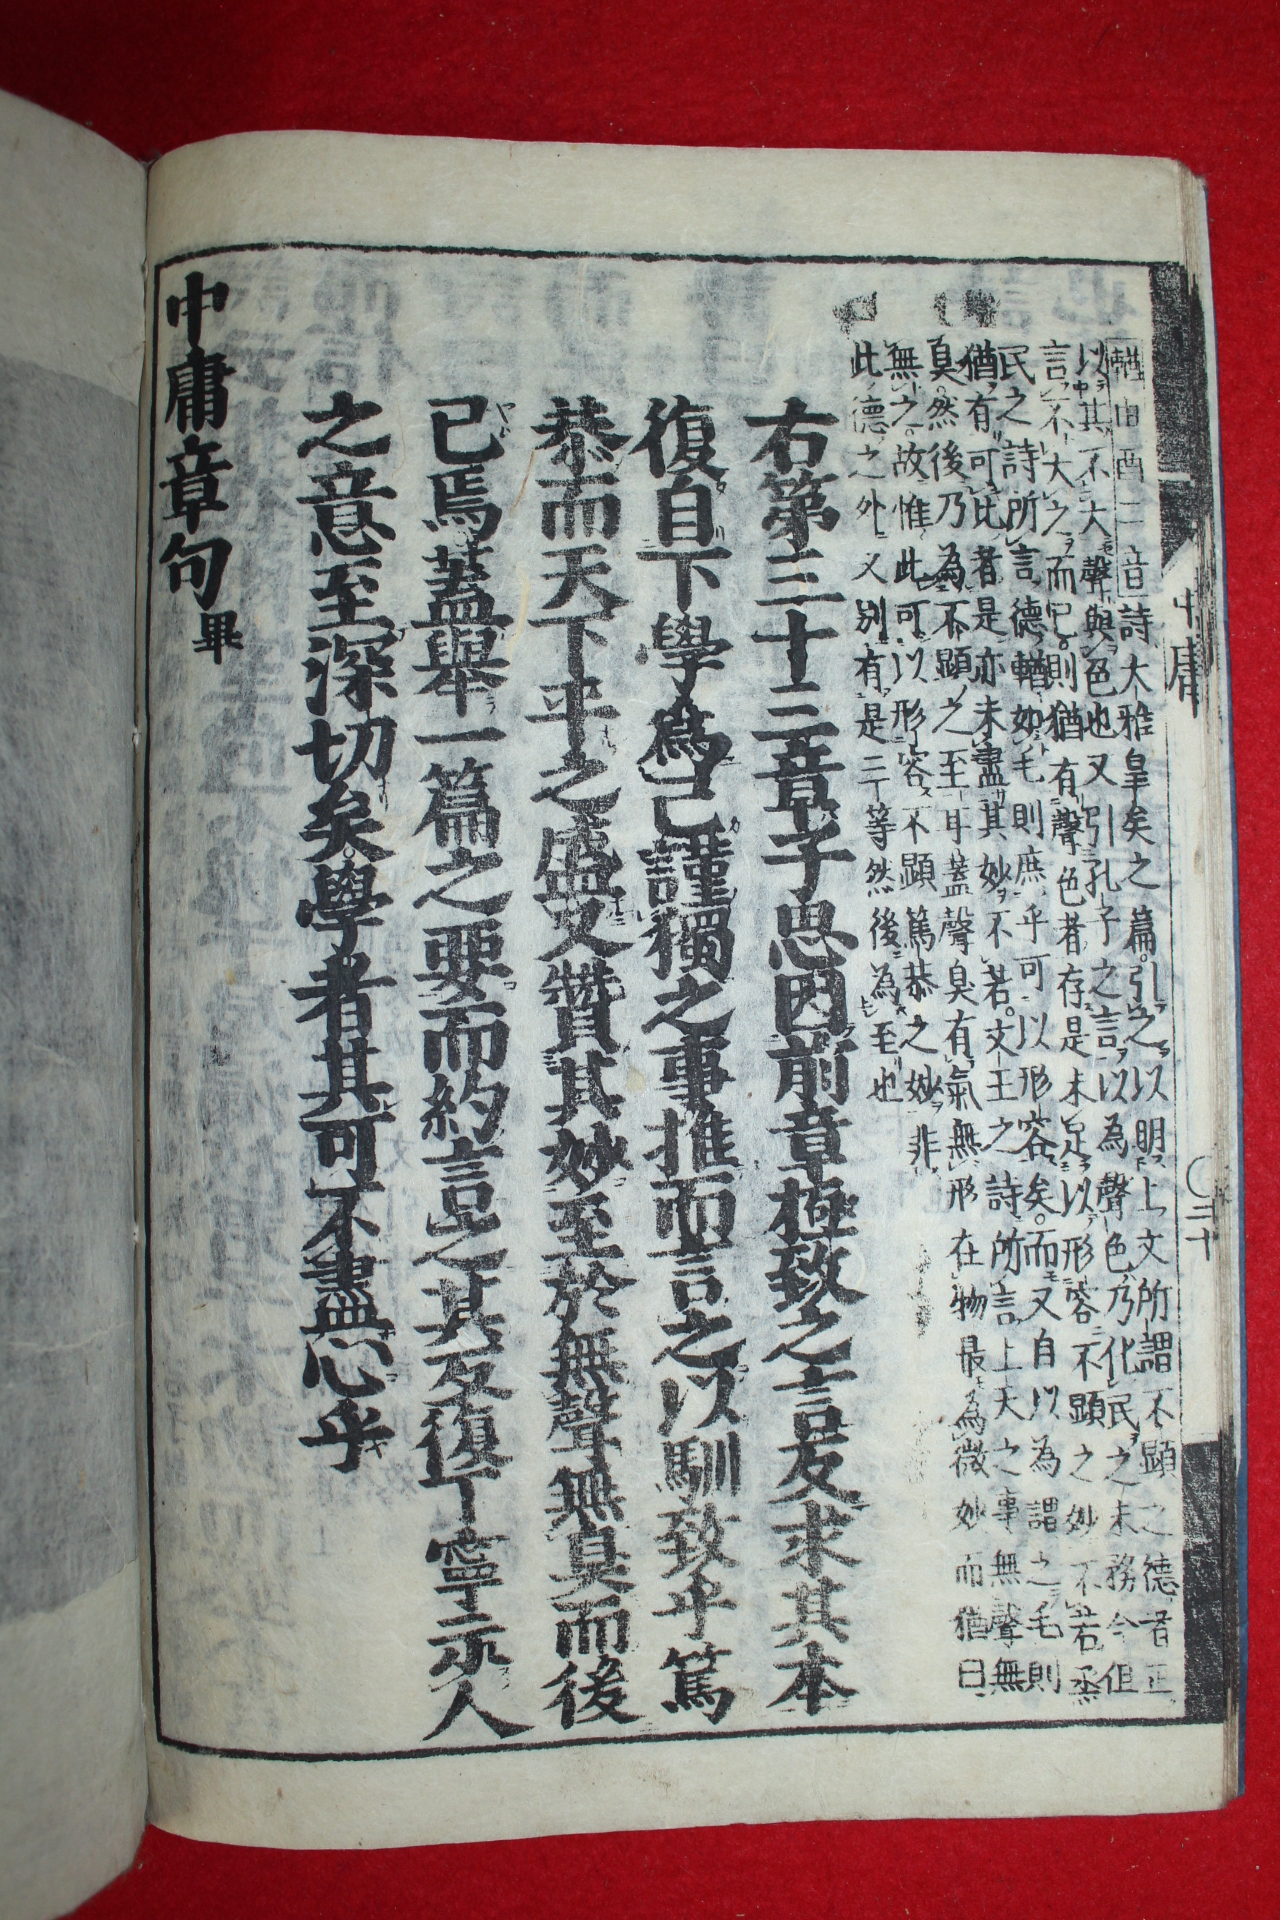 輶由酉二音詩大雅皇矣之篇引之以明上文所謂不顯之德者正
以其不大聲與色也又引孔子之言以為聲色乃化民之末務今但
言不大之而已則猶有聲色者存是未足以形容不顯之妙不若烝
民之詩所言德輶如毛則庶乎可以形容矣而又自以為謂之毛則
猶有可比者是亦未盡其妙不若文王之詩所言上天之事無聲無
臭然後乃為不顯之至耳蓋聲臭有氣無形在物最為微妙而猶曰
無之故惟此可以形容不顯篤恭之妙非
此德之外又別有是三等然後為至也
右第三十三章子思因前章極致之言反求其本
復自下學為己謹獨之事推而言之以馴致乎篤
恭而天下平之盛又贊其妙至於無聲無臭而後
已焉蓋舉一篇之要而約言之其反復丁寧示人
之意至深切矣學者其可不盡心乎
中庸章句畢